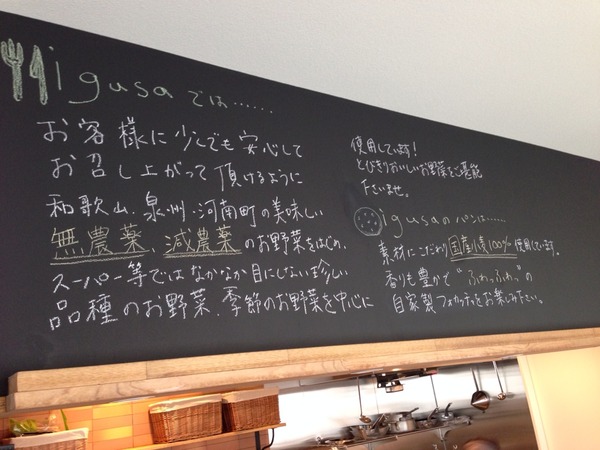 igusaでは……
お客様に少しでも安心して
お召し上がって頂けるように
和歌山、泉州、河南町の美味しい
無農薬、減農薬のお野菜をはじめ、
スーパー等ではなかなか目にしない珍しい
品種のお野菜、季節のお野菜を中心に
使用しています!
とびきりおいしいお野菜をご堪能
下さいませ。
igusaのパンは……
素材にこだわり国産小麦100%使用しています。
香りも豊かで"ふわっふわっ"の
自家製フォカッチャをお楽しみ下さい。